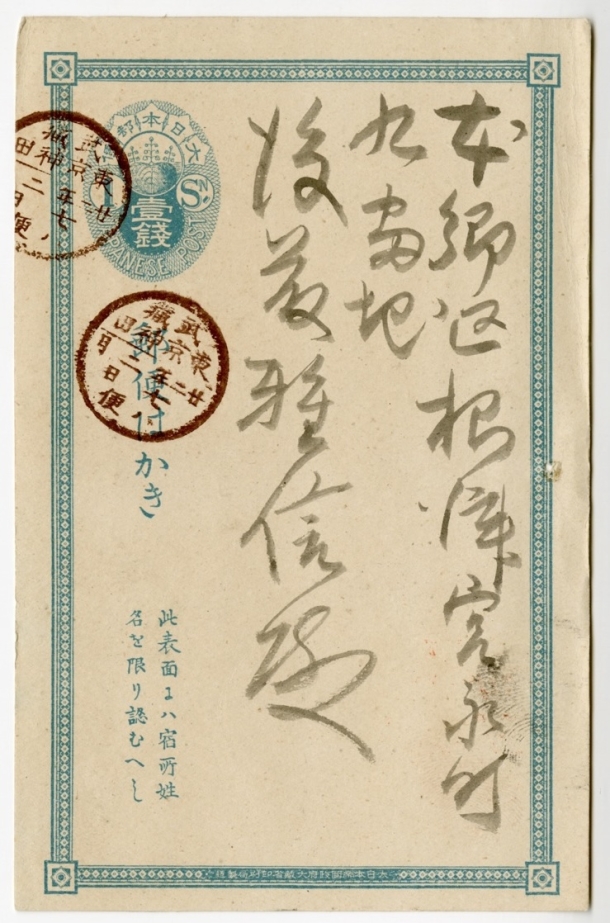 本郷区根津宮永町
九番地
後藤雅信殿
大日本郵便
1 Sɴ.
壹錢
JAPANESE POST
武蔵
東京神田
廿二年七月二日
便
武蔵
東京神田
廿二年七月二日
便
郵便はかき
此表面ニハ宿所姓
名を限り認むへし
大日本帝国政府大蔵省印刷局製造